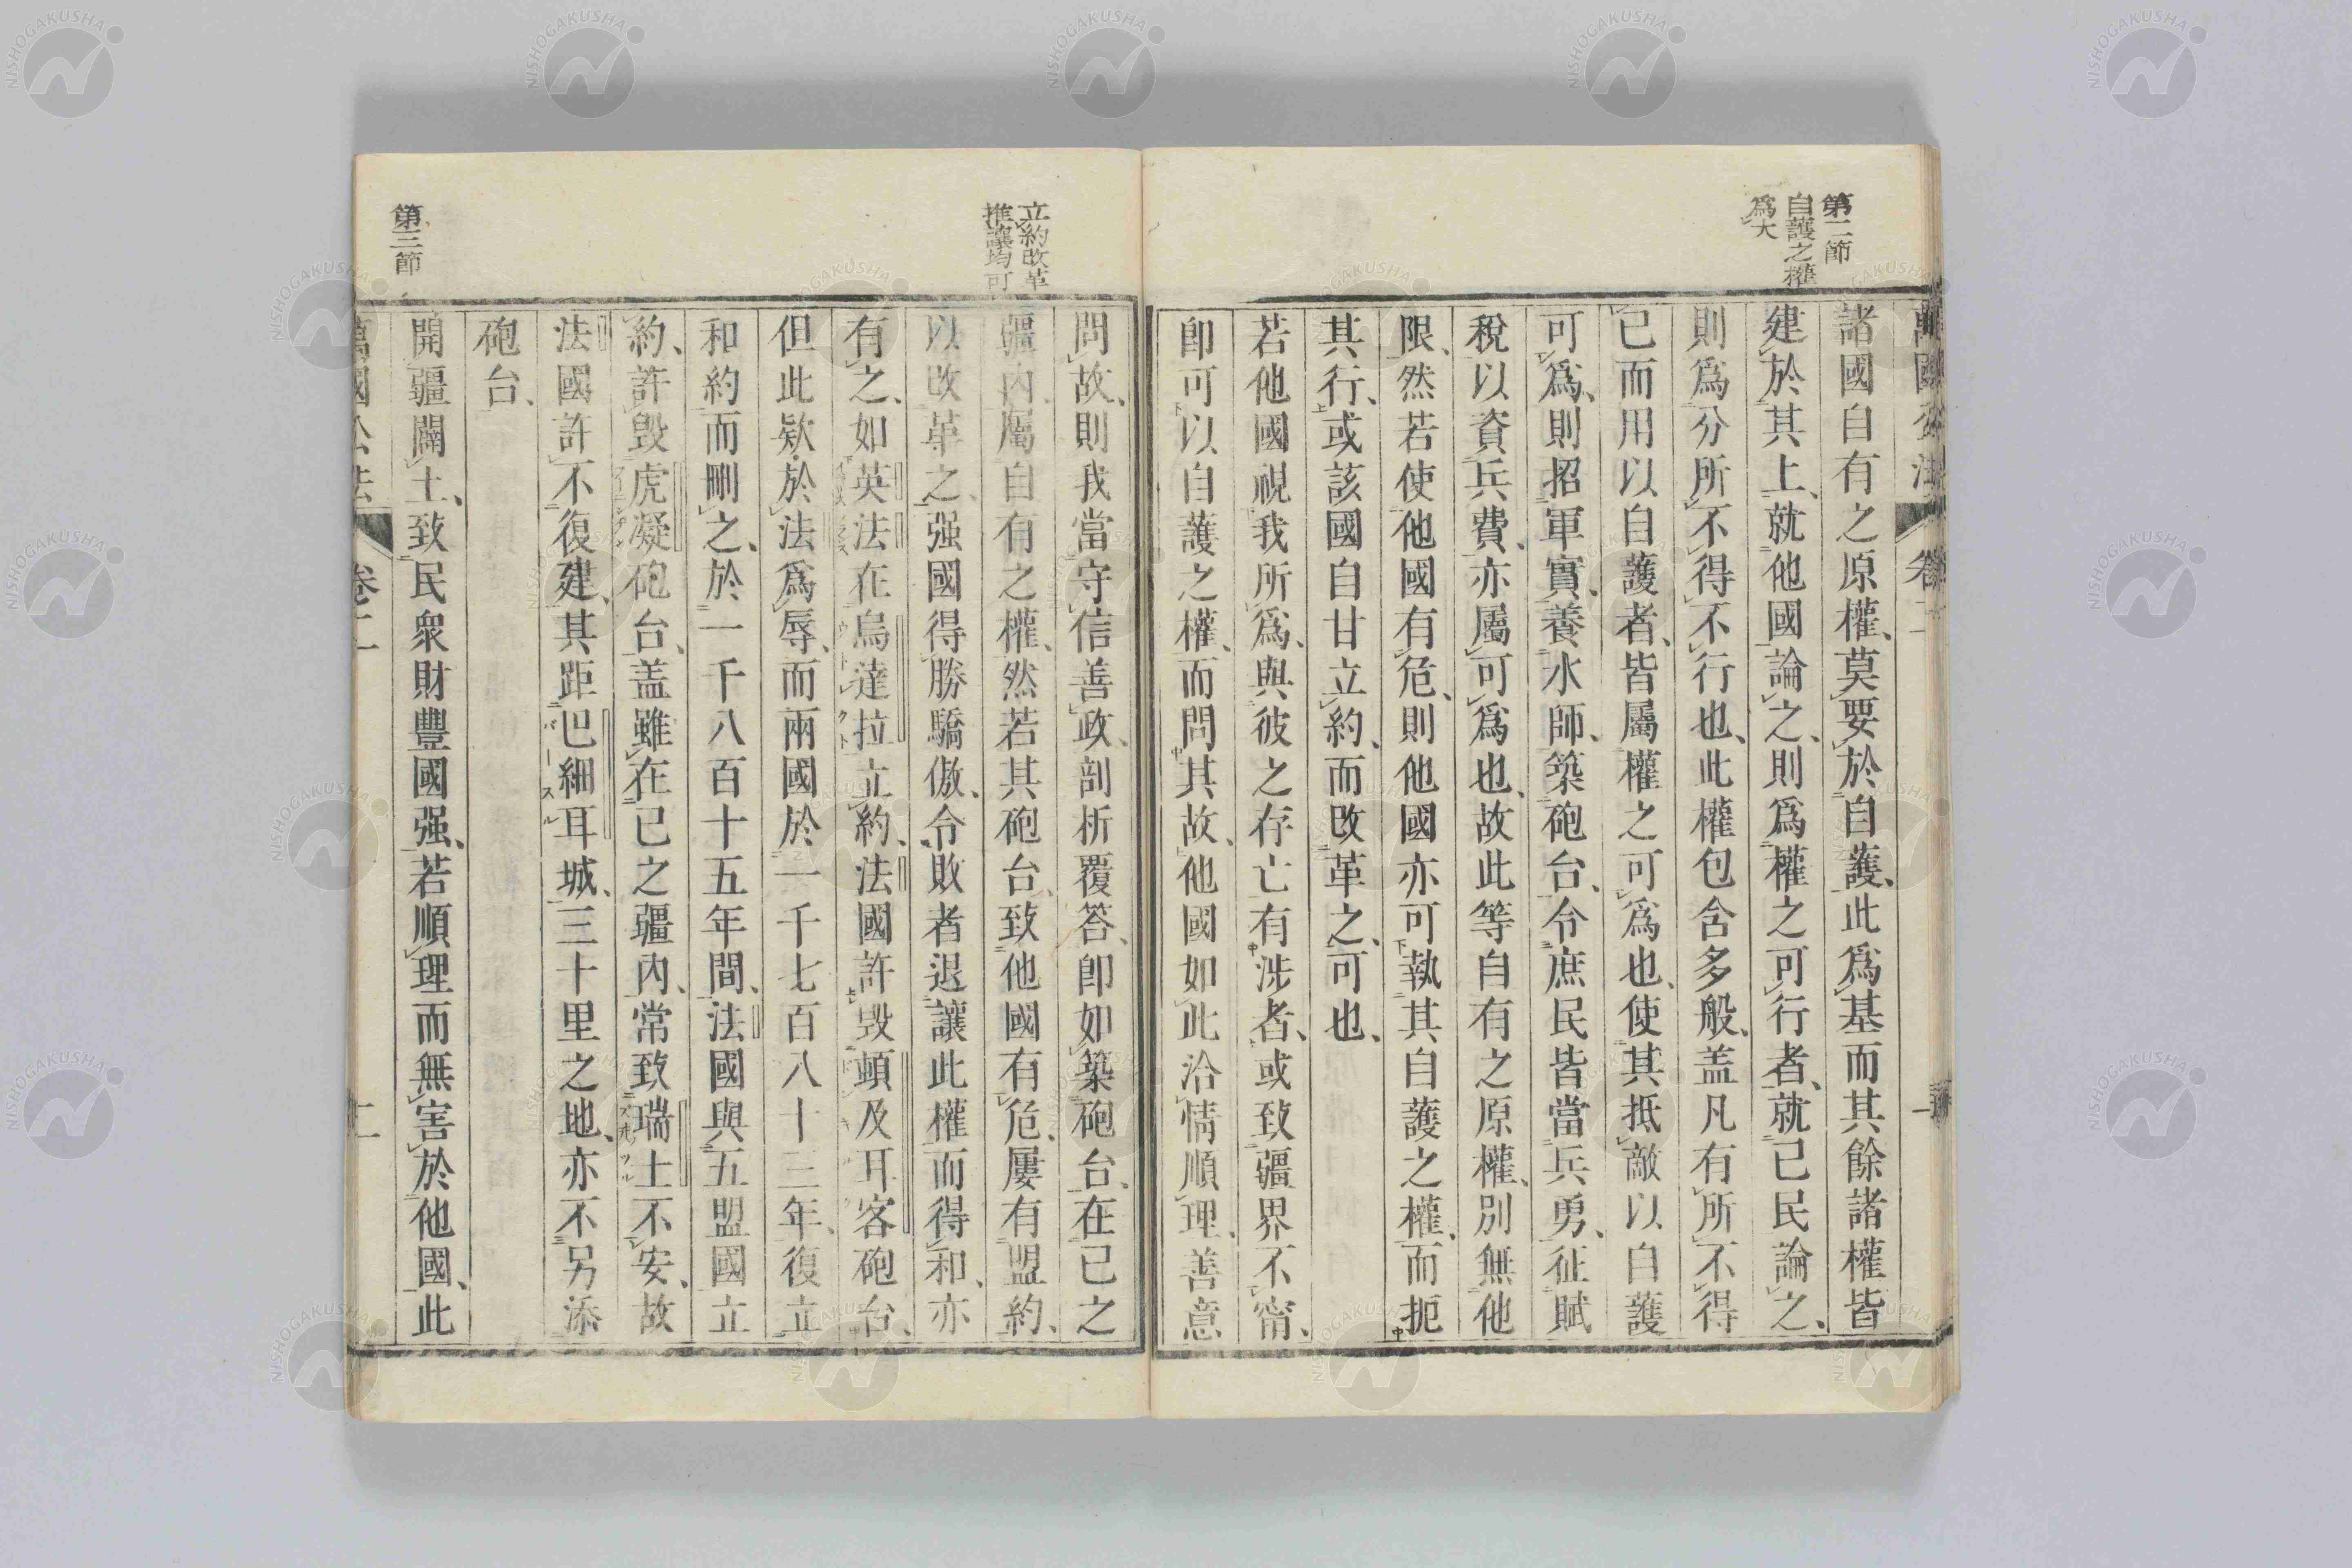 第二節
自護之權
爲大
萬國公法 卷二
諸國自有之原權、莫要於自護、此爲基而其餘諸權皆
建於其上、就他國論之、則爲權之可行者、就己民論之、
則爲分所不得不行也、此權包含多般、盖凡有所不得
已而用以自護者、皆屬權之可爲也、使其抵敵以自護
可爲、則招軍實、養水師、築砲台、令庶民皆當兵勇、征賦
稅以資兵費、亦屬可爲也、故此等自有之原權、別無他
限、然若使他國有危、則他國亦可執其自護之權、而扼
其行、或該國自甘立約、而改革之、可也、
若他國視我所爲、與彼之存亡有涉者、或致疆界不甯、
卽可以自護之權、而問其故、他國如此洽情順理、善意
立約改革
推讓均可
問故、則我當守信善政、剖析覆答、卽如築砲台、在己之
疆內、屬自有之權、然若其砲台、致他國有危、屢有盟約、
以改革之、强國得勝驕傲、令敗者退讓此權而得和、亦
有之、如英法在烏達拉立約、法國許毀頓及耳客砲台、
但此欵於法爲辱、而兩國於一千七百八十三年、復立
和約而刪之、於一千八百十五年間、法國與五盟國立
約、許毀虎凝砲台、盖雖在己之疆內、常致瑞士不安、故
法國許不復建、其距巴細耳城、三十里之地、亦不另添
砲台、
第三節
開疆闢土、致民衆財豐國强、若順理而無害於他國、此
萬國公法 卷二 二